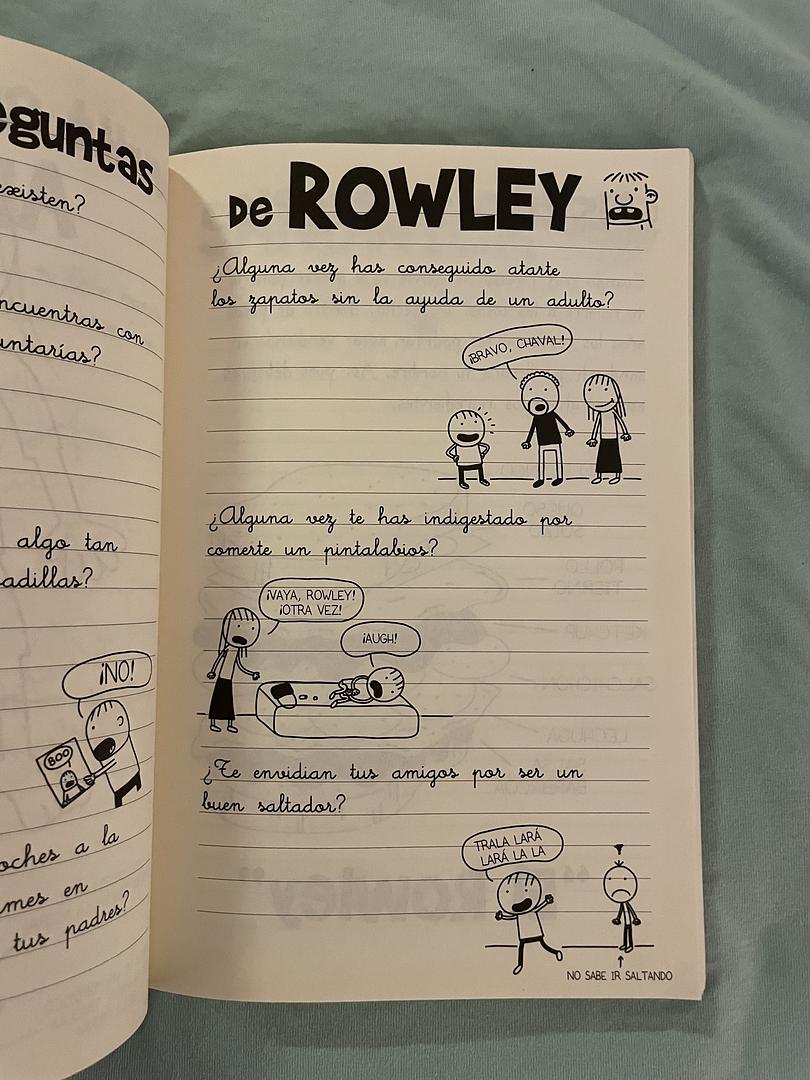 eguntas
existen?
ncuentras con
untarías?
algo tan
adillas?
¡NO!
BOO
oches a la
mes en
tus padres?
DE ROWLEY
¿Alguna vez has conseguido atarte
los zapatos sin la ayuda de un adulto?
¡BRAVO, CHAVAL!
¿Alguna vez te has indigestado por
comerte un pintalabios?
¡VAYA, ROWLEY!
¡OTRA VEZ!
¡AUGH!
¿Te envidian tus amigos por ser un
buen saltador?
TRALA LARÁ
LARÁ LA LA
NO SABE IR SALTANDO